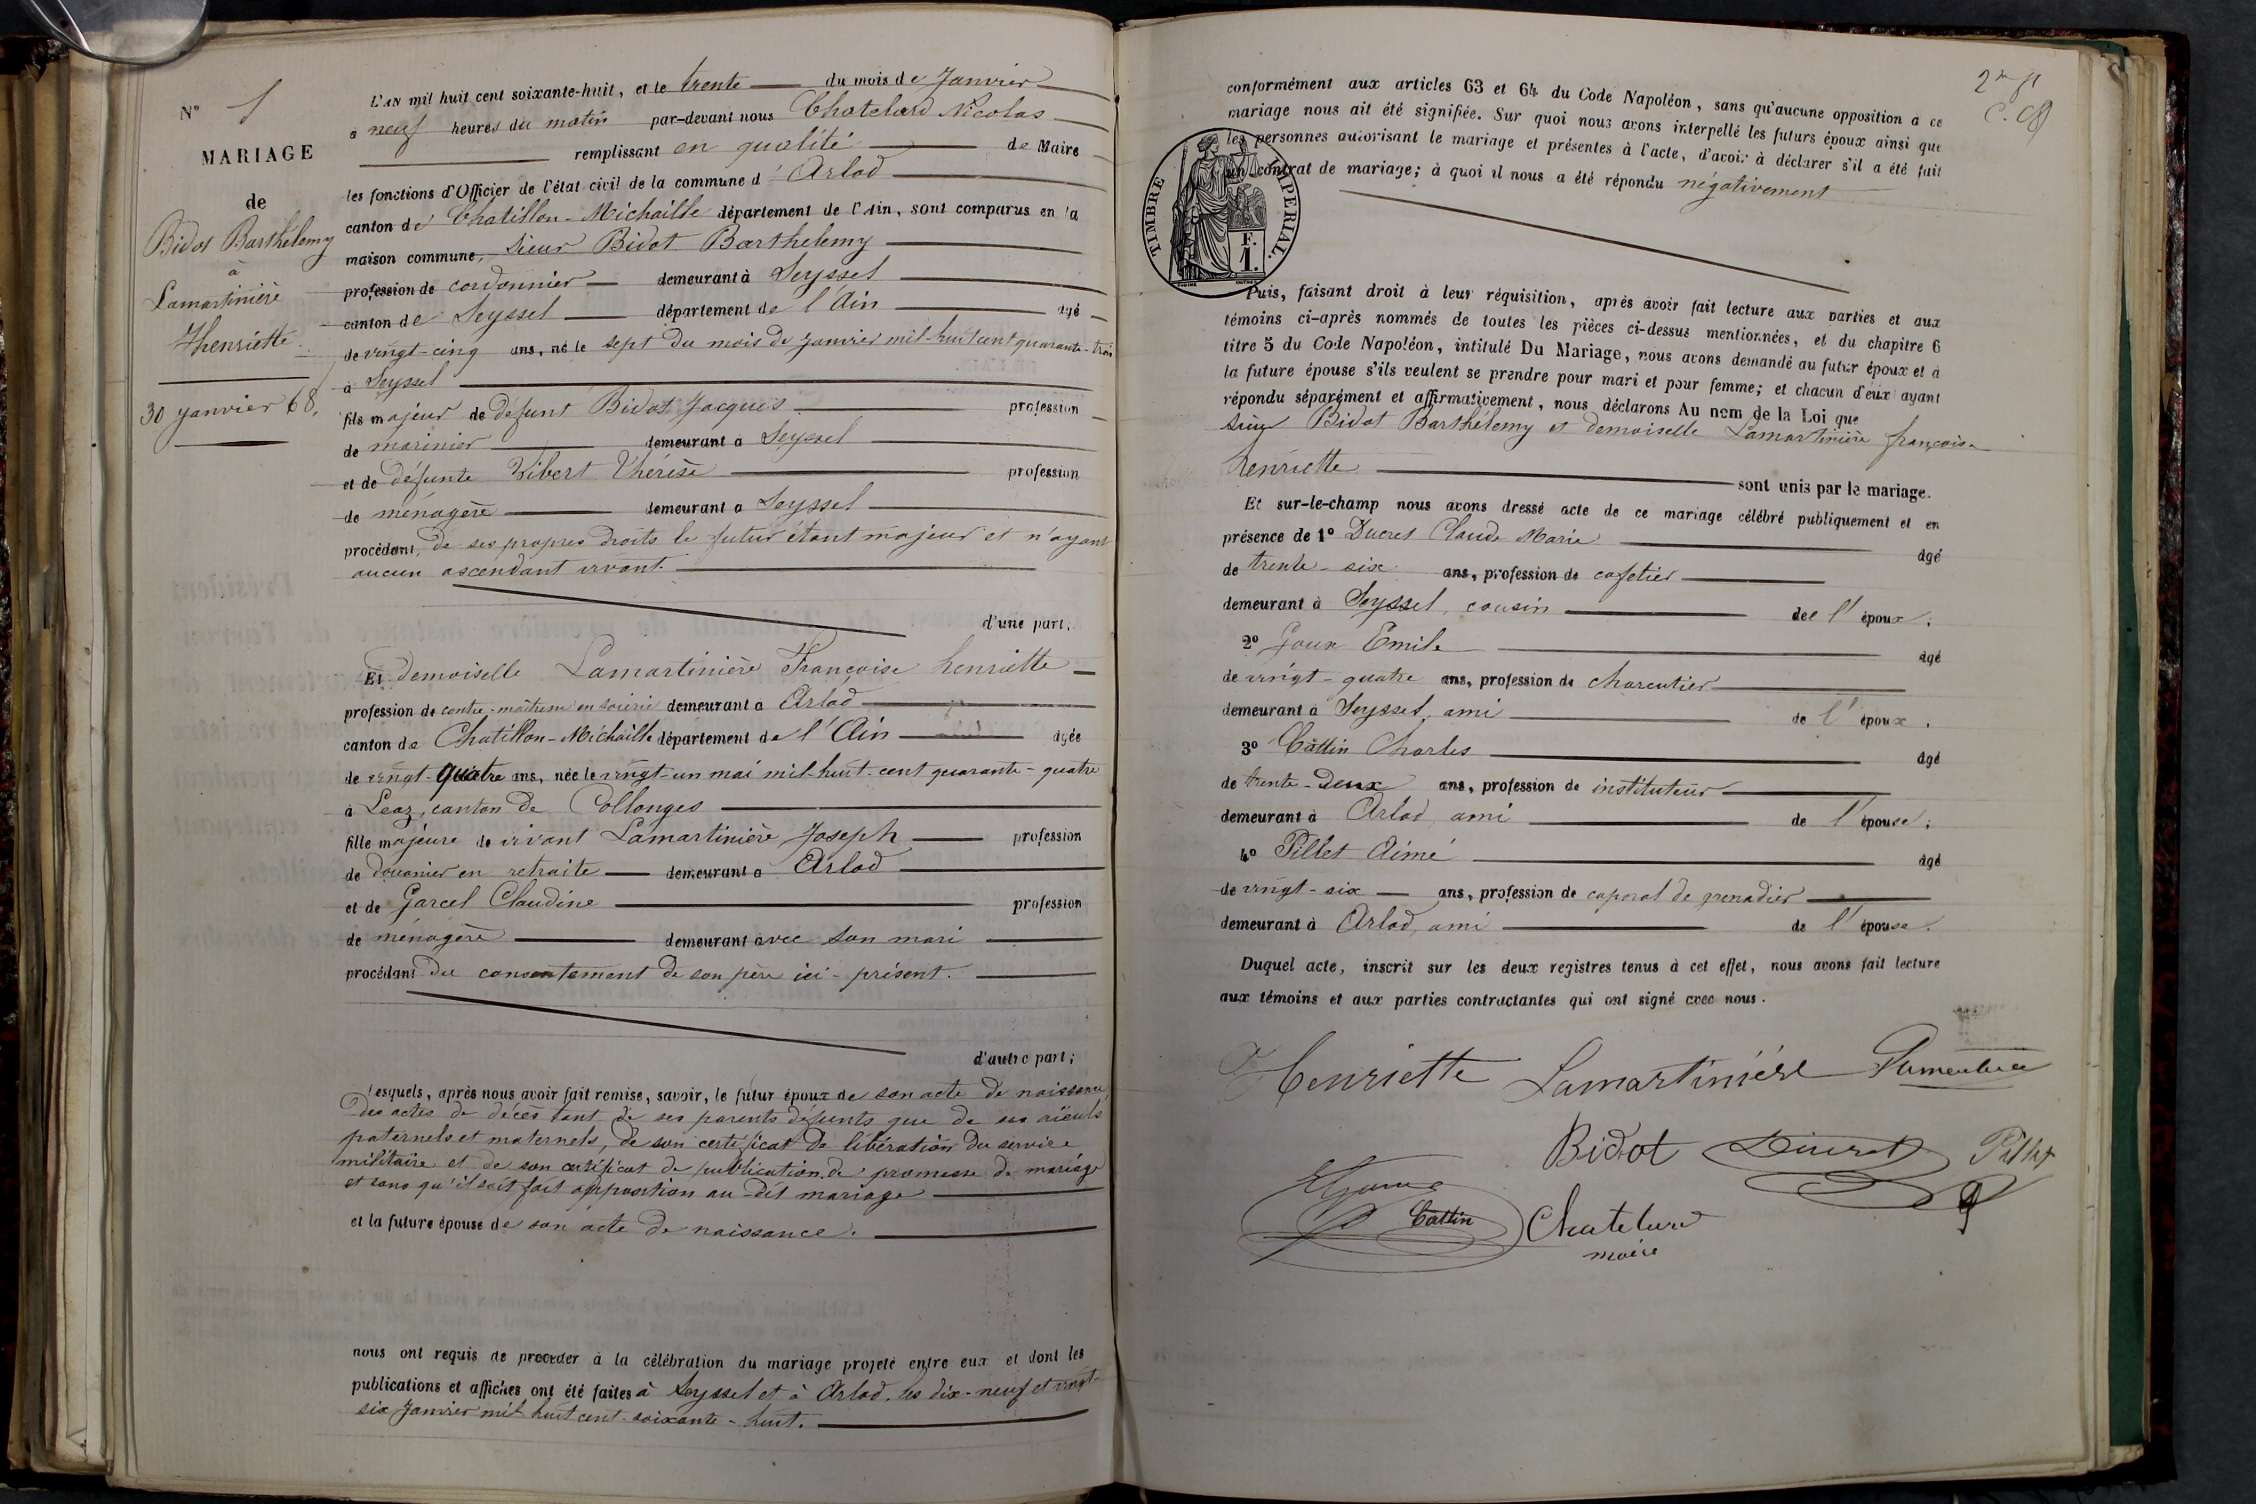 N° 1
MARIAGE
de
Bidot Barthélemy
à
Lamartinière
Henriette
30 janvier 68.
L'AN mil huit cent soixante-huit, et le trente du mois de Janvier
à neuf heures du matin par-devant nous Chatelard Nicolas
remplissant en qualité de Maire
les fonctions d'Officier de l'état civil de la commune d'Arlod
canton de Chatillon-Michaille département de l'Ain, sont comparus en la
maison commune, sieur Bidot Barthelemy
profession de cordonnier demeurant à Seyssel
canton de Seyssel département de l'Ain agé
de vingt-cinq ans, né le sept du mois de janvier mil-huit cent quarante-trois
à Seyssel
fils majeur de défunt Bidot Jacques profession
de marinier demeurant à Seyssel
et de défunte Vibert Thérèse profession
de ménagère demeurant a Seyssel
procédant, de ses propres droits le futur étant majeur et n'ayant
aucun ascendant vivant.
d'une part,
Et demoiselle Lamartinière Françoise henriette
profession de contre-maîtresse en soierie demeurant a Arlod
canton de Chatillon-Michaille département de l'Ain agée
de vingt-quatre ans, née le vingt-un mai mil-huit-cent quarante-quatre
à Leaz, canton de Collonges
fille majeure de vivant Lamartinière Joseph profession
de douanier en retraite demeurant a Arlod
et de Garcel Claudine profession
de ménagère demeurant avec son mari
procédant du consentement de son père ici-présent.
d'autre part;
lesquels, après nous avoir fait remise, savoir, le futur époux de son acte de naissance,
des actes de décès tant de ses parents défunts que de ses aïeuls
paternels et maternels, de son certificat de libération du service
militaire et de son certificat de publication de promesse de mariage
et sans qu'il soit fait opposition au dit mariage
et la future épouse de son acte de naissance.
nous ont requis de procéder à la célébration du mariage projeté entre eux et dont les
publications et affiches ont été faites à Seyssel et à Arlod, les dix-neuf et vingt-
six Janvier mil huit cent-soixante-huit.
conformément aux articles 63 et 64 du Code Napoléon, sans qu'aucune opposition a ce
mariage nous ait été signifiée. Sur quoi nous avons interpellé les futurs époux ainsi que
les personnes autorisant le mariage et présentes à l'acte, d'avoir à déclarer s'il a été fait
un contrat de mariage; à quoi il nous a été répondu négativement
TIMBRE IMPERIAL.
F.
1.
Puis, faisant droit à leur réquisition, après avoir fait lecture aux parties et aux
témoins ci-après nommés de toutes les pièces ci-dessus mentionnées, et du chapitre 6
titre 5 du Code Napoléon, intitulé Du Mariage, nous avons demandé au futur époux et à
la future épouse s'ils veulent se prendre pour mari et pour femme; et chacun d'eux ayant
répondu séparément et affirmativement, nous déclarons Au nom de la Loi que
sieur Bidot Barthélemy et demoiselle Lamartinière françoise
henriette sont unis par le mariage.
Et sur-le-champ nous avons dressé acte de ce mariage célébré publiquement et en
présence de 1° Ducret Claude Marie agé
de trente-six ans, profession de cafetier
demeurant à Seyssel, cousin de l'époux,
2° Goux Emile agé
de vingt-quatre ans, profession de charcutier
demeurant à Seyssel, ami de l'époux,
3° Cattin Charles agé
de trente-deux ans, profession de instituteur
demeurant à Arlod ami de l'épouse,
4° Pillet Aimé agé
de vingt-six ans, profession de caporal de grenadier
demeurant à Arlod, ami de l'épouse.
Duquel acte, inscrit sur les deux registres tenus à cet effet, nous avons fait lecture
aux témoins et aux parties contractantes qui ont signé avec nous.
Henriette Lamartinière
Bidot Ducret Pillet
Cattin Chatelard
maire